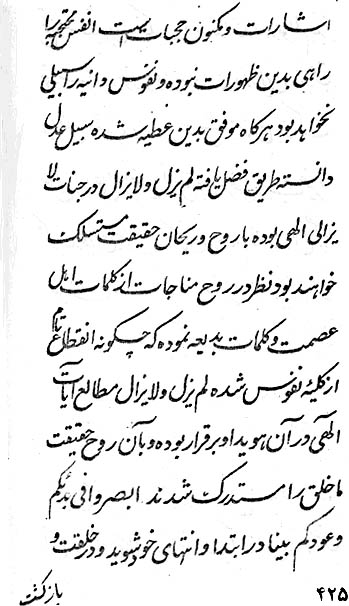 اشارات و مکنون حجبات است انفس محتجبه را
راهی بدین ظهورات نبوده و نفوس دانیه را سبیلی
نخواهد بود هرگاه موفق بدین عطیه شده سبیل عدل
دانسته طریق فضل یافته لم یزل و لایزال در جنات لا
یزالی الهی بوده با روح و ریحان حقیقت متمسک
خواهند بود نظر در روح مناجات از کلمات اهل
عصمت و کلمات بدیعه نموده که چگونه انقطاع تام
از کلیهٔ نفوس شده لم یزل و لایزال مطالع آیات
الهی در آن هویدا و برقرار بوده و بآن روح حقیقت
ما خلق را مستدرک شدند ابصروا فی بدئکم
و عودکم بینا در ابتدا و انتهای خود شوید و در خلقت و
بازگشت
۴۲۵